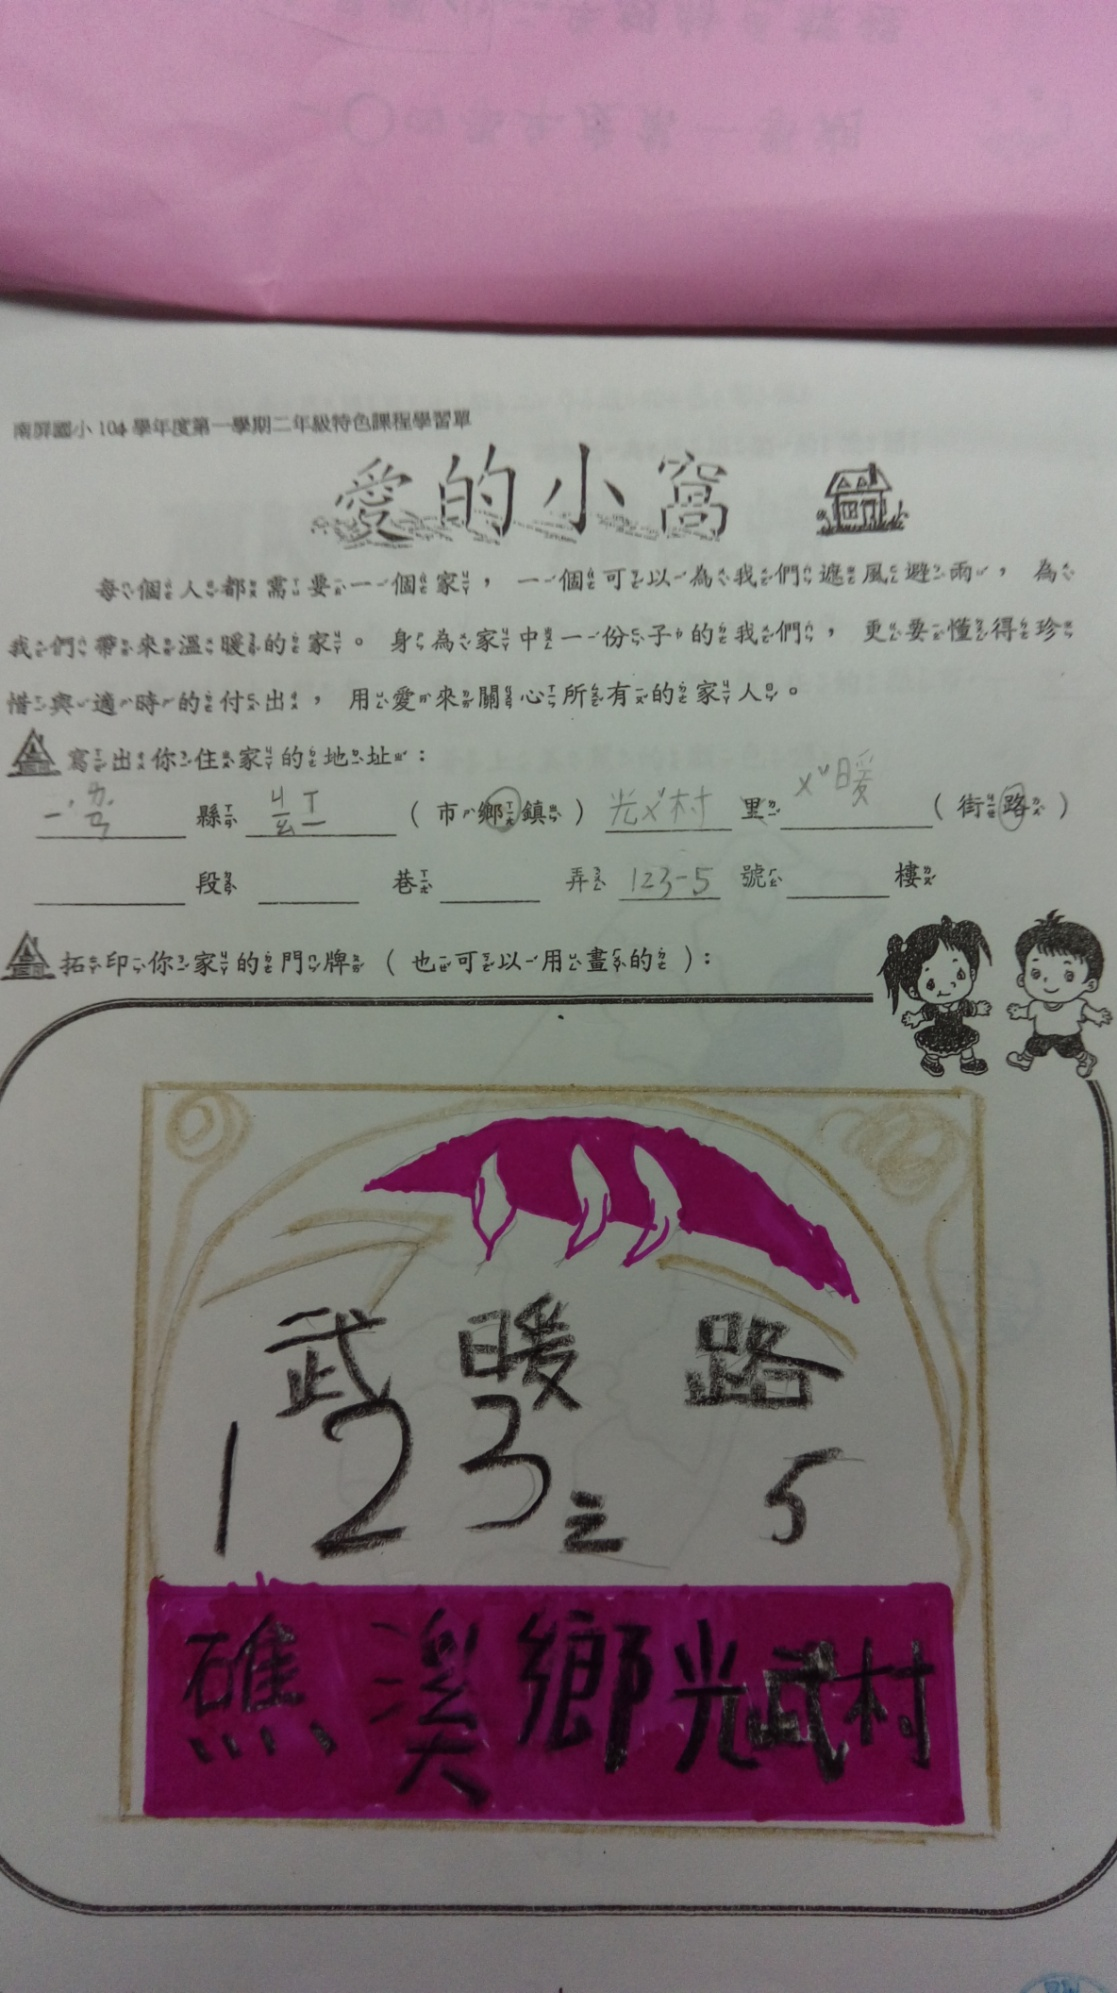 南屏國小104學年度第一學期二年級特色課程學習單
愛的小窩
每個人都需要一個家，一個可以為我們遮風避雨，為
我們帶來溫暖的家。身為家中一份子的我們，更要懂得珍
惜與適時的付出，用愛來關心所有的家人。
寫出你住家的地址：
ㄧˊㄌㄢˊ縣ㄐㄧㄠ ㄒㄧ（市鄉鎮）光ㄨˇ村里ㄨˇ暖（街路）
段 巷 弄 123-5 號 樓
拓印你家的門牌（也可以用畫的）：
武暖路
123之5
礁溪鄉光武村